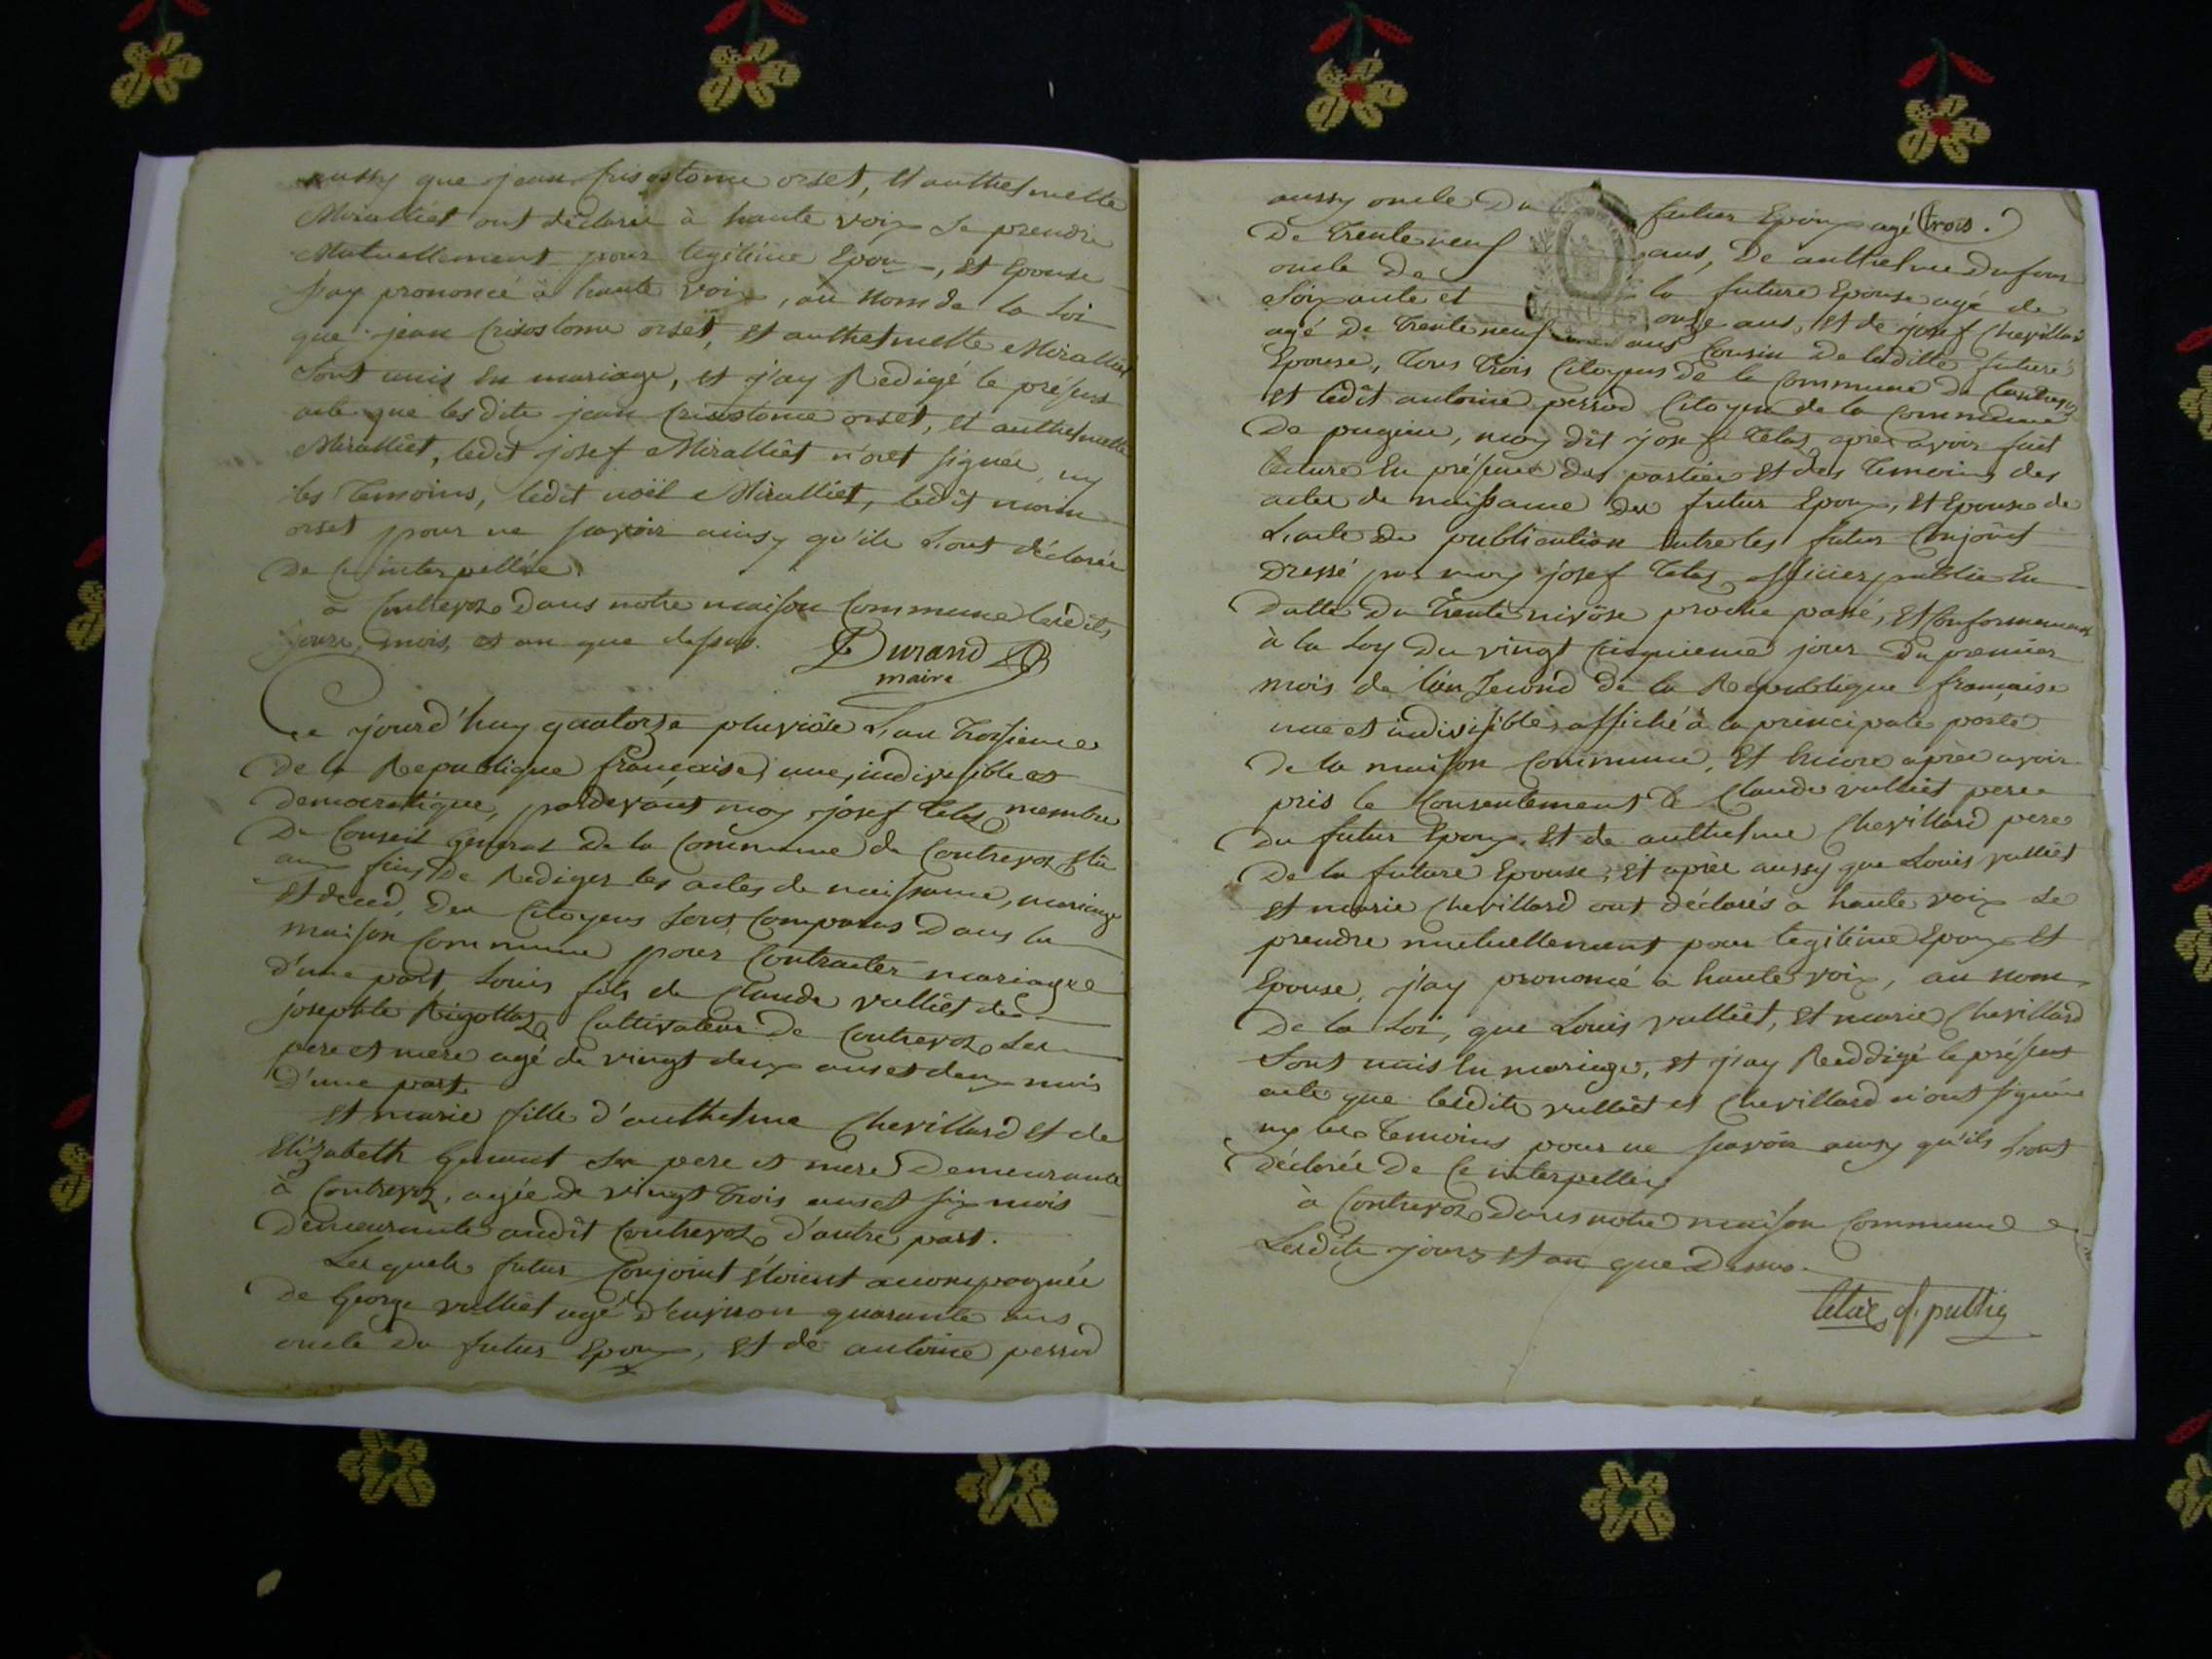 aussy que jean Crisostome orset, et anthelmette
Miralliet ont déclaré à haute voix se prendre
Mutuellement pour legitime Epoux, et Epouse
j'ay prononcé à haute voix, au nom de la Loi
que jean Crisostome orset, et anthelmette Miralliet
sont unis en mariage, et j'ay Redigé le présent
acte que lesdits jean Crisostome orset, et anthelmette
Miralliet, ledit josef Miralliet n'ont signée, ny
les Temoins, ledit noël Miralliet, ledit
orset pour ne savoir ainsy qu'ils L'ont déclarée
De Ce interpellée.
à Contrevoz Dans notre maison Commune lesdits
jour, mois, et an que dessus. Durand
maire
Ce jourd'huy quatorze pluviôse L'an Troisieme
De la Republique française, une, indivisible et
Democratique, pardevant moy josef Telas membre
Du Conseil General De la Commune de Contrevoz Elû
aux fins De Rediger les actes de naissance, mariage
et deced, des Citoyens sont Comparus Dans la
maison Commune pour Contracter mariage
d'une part, Louis fils de Claude vulliet et de
josephte Rigollaz Cultivateur De Contrevoz ses
pere et mere agé de vingt deux ans et deux mois
D'une part.
Et marie fille d'anthelme Chevillard et de
Elizabeth ses pere et mere Demeurante
à Contrevoz, agée de vingt Trois ans et six mois
Demeurante audit Contrevoz d'autre part.
Lesquels futur Conjoint étoient accompagnée
De George vulliet agé d'environ quarante ans
oncle Du futur Epoux, et de antoine perrod
aussy oncle Du futur Epoux agé trois.
De Trente neuf ans, De anthelme Dufour
oncle De la future Epouse agé de
soixante et onze ans, et de josef Chevillard
agé De Trente neuf ans Cousin De laditte future
Epouse, Tous Trois Citoyens De la Commune De Contrevoz
et ledit antoine perrod Citoyen de la Commune
De pugieu, moy dit josef Telas après avoir fait
lecture En présence des parties et des Temoins des
actes de naissance des futur Epoux, et Epouse de
L'acte De publication Entre les futur Conjoint
Dressé par moy josef Telas officier public En
Datte Du Trente nivôse proche passé, et Conformement
à la Loy Du vingt Cinquieme jour Du premier
mois de l'an second De la Republique française
une et indivisible, affiché à la principale porte
De la maison Commune, Et Encore après avoir
pris le Consentement de Claude vulliet pere
Du futur Epoux, Et de anthelme Chevillard pere
De la future Epouse, Et après aussy que Louis vulliet
et marie Chevillard ont déclarés à haute voix se
prendre mutuellement pour legitime Epoux et
Epouse, j'ay prononcé à haute voix, au nom
De la Loi, que Louis vulliet, et marie Chevillard
sont unis En mariage, et j'ay Reddigé le présent
acte que lesdits vulliet et Chevillard n'ont signée
ny les Temoins pour ne savoir ainsy qu'ils L'ont
déclarée De Ce interpellés
à Contrevoz Dans notre maison Commune
Lesdits jours et an que Dessus.
Telas of. public